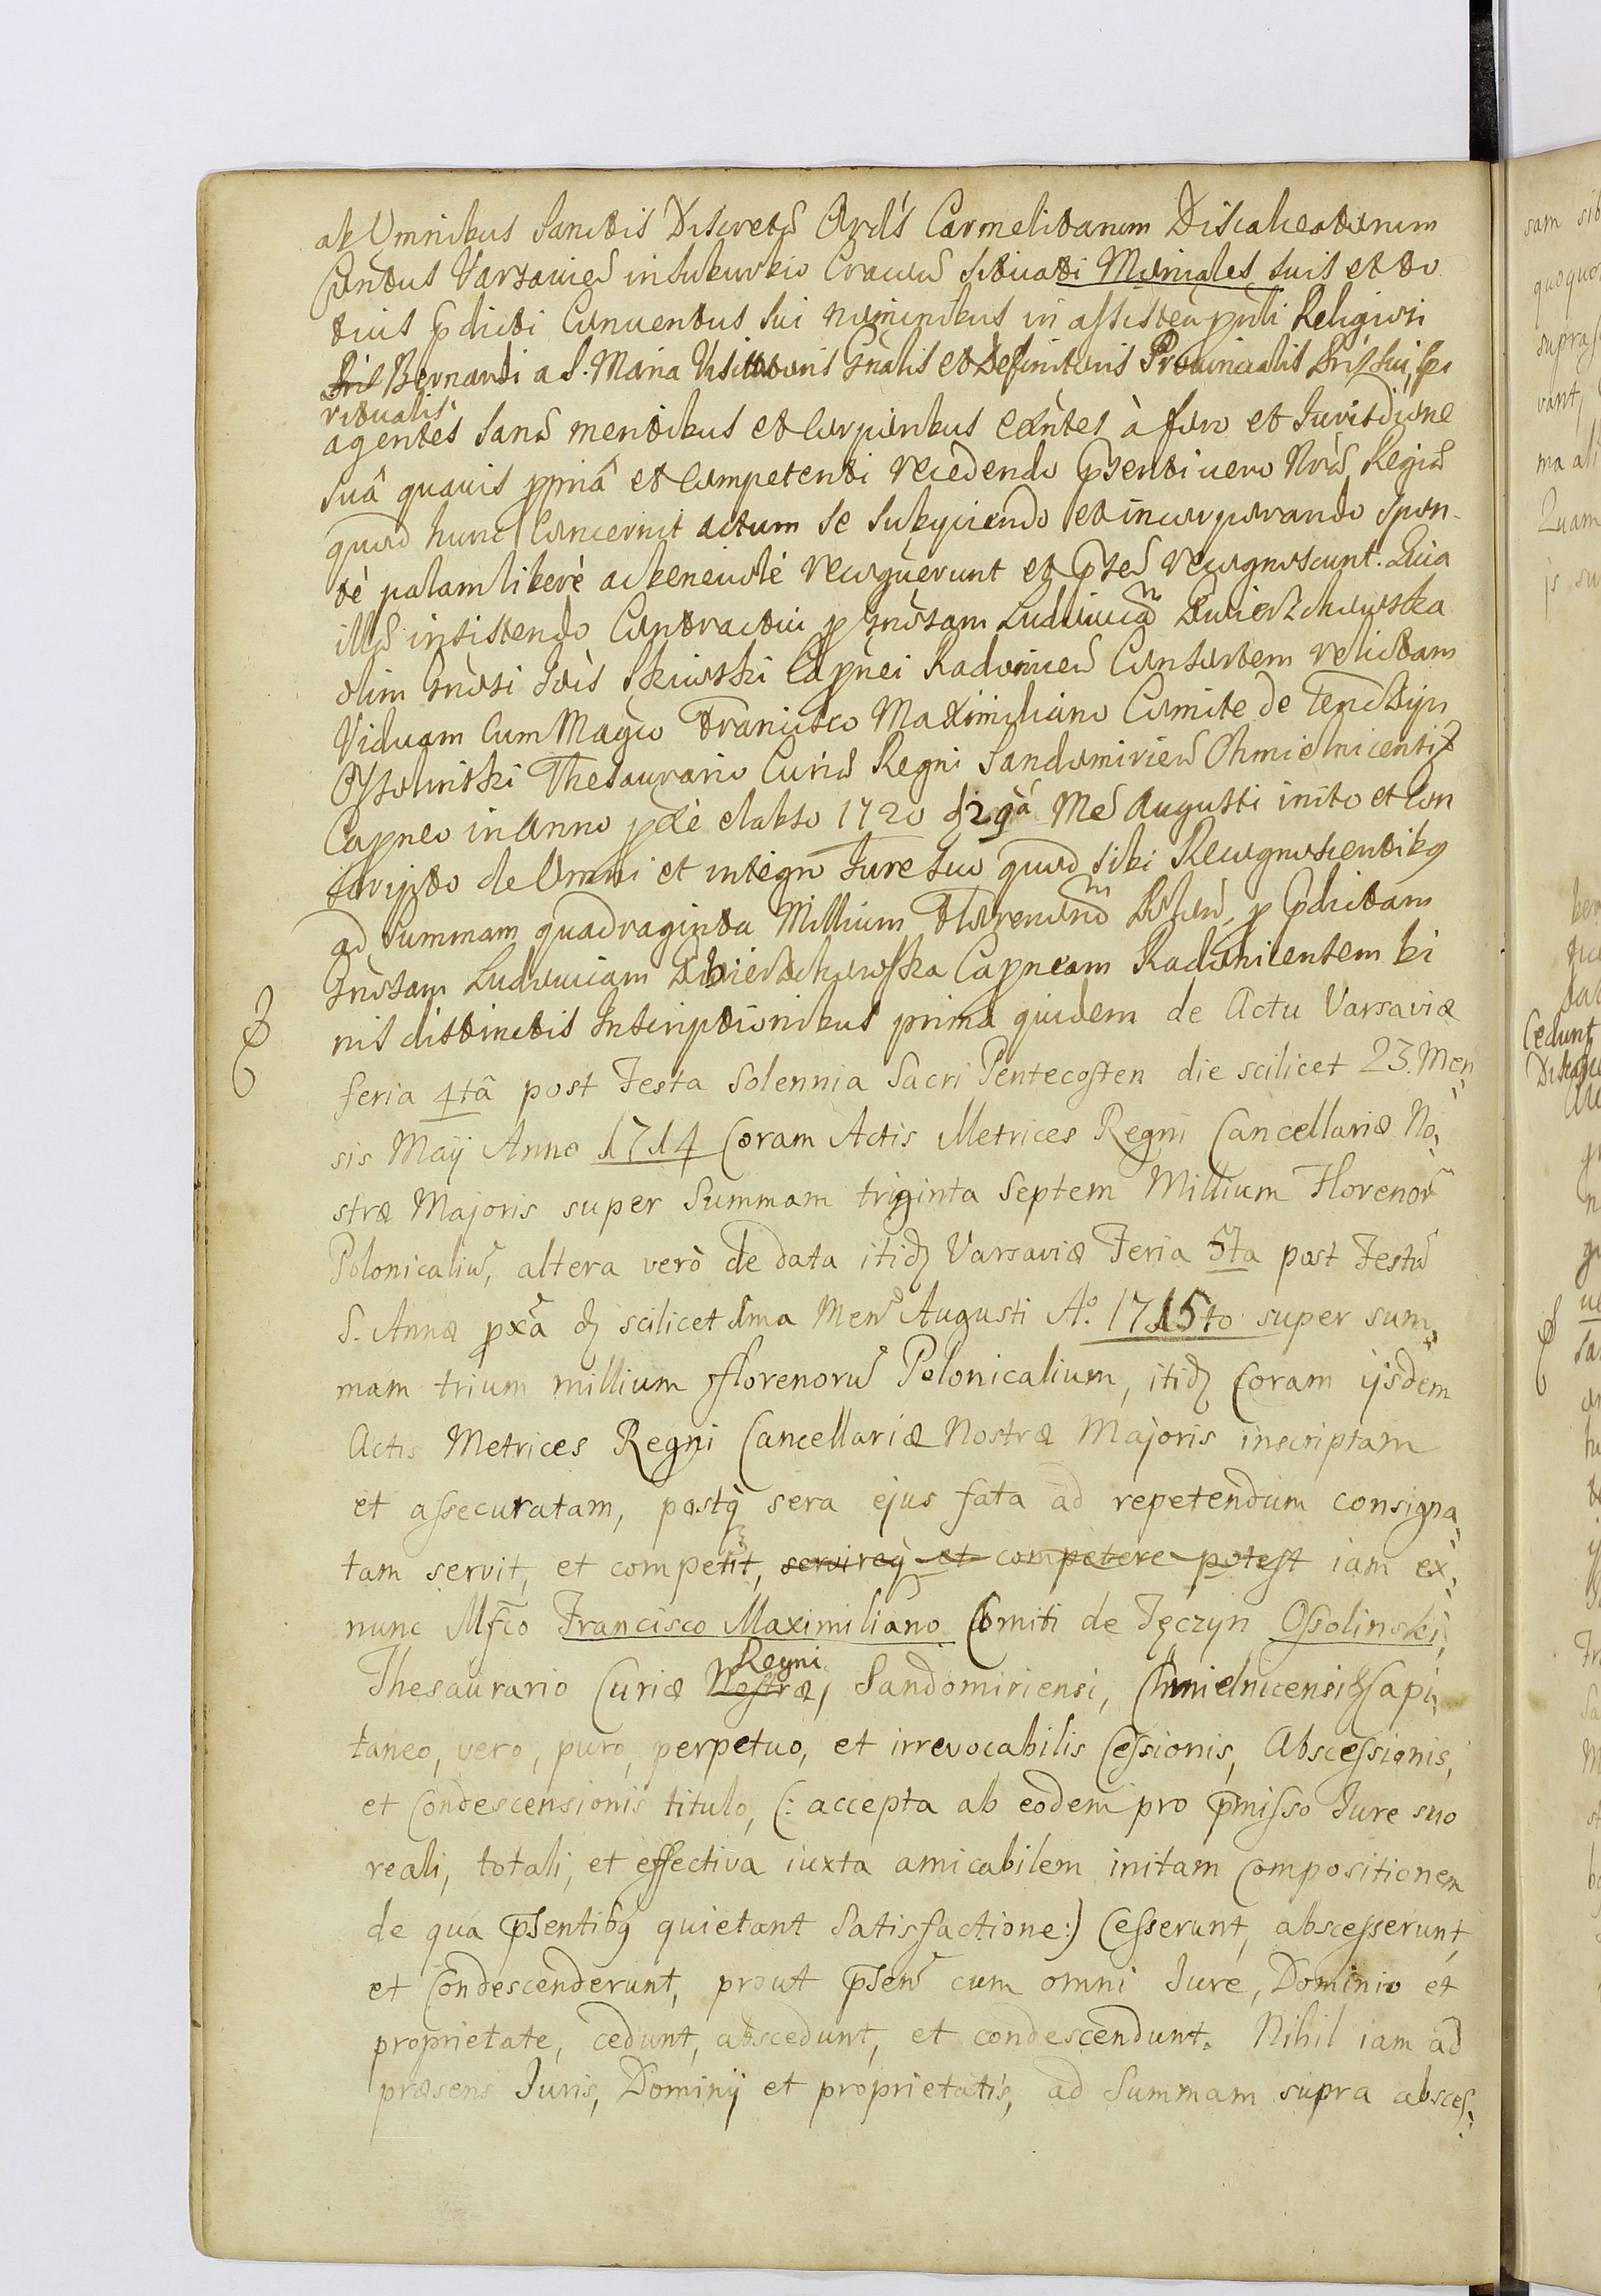 ab Omnibus Sanctis Discretę Ord's Carmelitarum Discalceatarum
Contus Varsavień in suburbio Cracoviń situati Moniales suis et to
tius pdicti Conventus sui nominibus in assisteń pnti Religiosi
Pris Bernardi a S. Maria Visitatoris Gnalis et Definitoris Provincialis Pris sui spi
ritualis
agentes sanę mentibus et corporibus exñtes à foro et Jurisdione
suâ quavis ppriâ et competenti recedendo psenti vero Nrę Regię
quoad hunc concernit actum se subyciendo et incorporando spon
tè palam liberè ac benevolè recognverunt et pseń recognoscunt. Quia
illę insistendo Contractui p Gnosam Ludovicam Zwierzchowska
olim Gnosi Jois Skiwski Capnei Radomień Consortem relictam
Viduam cum Magco Francisco Maximiliano Comite de Tenczyn
Ossolinski Thesaurario Curię Regni Sandomirień Chmielnicensi
Capneo in Anno pxè elabso 1720 d 29â Mē Augusti inito et con
scripto de Omni et integro Jure suo quod sibi Recognoscentibq
ad summam quadraginta Millium Florenorum Polon p pdictam
Gnosam Ludovicam Zwierzchowska Capneam Radomicensem bi
nis distinctis Inscriptionibus prima quidem de Actu Varsaviæ
feria 4tâ post Festa Solennia Sacri Pentecosten die scilicet 23. Men
sis Maÿ Anno 1714 Coram Actis Metrices Regni Cancellariæ No
stræ Majoris super Summam triginta Septem Millium Florenor
Polonicaliū, altera verò de data itid Varsaviæ Feria 5ta post Festū
S. Annæ pxâ d scilicet 1ma Men Augusti A.o 1715to super sum
mam trium millium fflorenorū Polonicalium, itid Coram ijsdem
Actis Metrices Regni Cancellariæ Nostræ Majoris inscriptam
et assecuratam, postq sera ejus fata ad repetendum consigna
tam servit, et competit, servireq et competere potest iam ex
nunc Mfco Francisco Maximiliano Comiti de Tęczyn Ossolinski,
Regni
Thesaurario Curiæ Nostræ, Sandomiriensi, Chmielnicensiq Capi
taneo, vero, puro, perpetuo, et irrevocabilis Cessionis, Abscessionis,
et Condescensionis titulo, (: accepta ab eodem pro pmisso Jure suo
reali, totali, et effectiva iuxta amicabilem initam Compositionem
de qua psentibq quietant Satisfactione :) Cesserunt, abscesserunt,
et Condescenderunt, prout pseń cum omni Jure, Dominio et
proprietate, cedunt, abscedunt, et condescendunt. Nihil iam ad
præsens Juris, Dominÿ et proprietatis, ad Summam supra absces